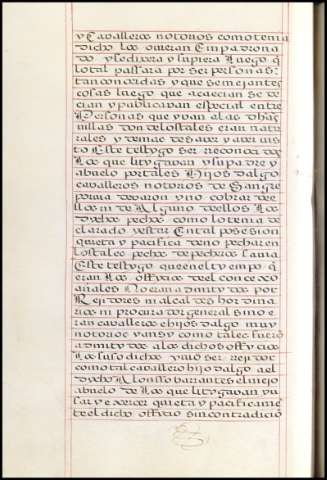 y Cavalleros notorios como tenia
dicho los ovieran Empadrona
do y se dixera y supiera luego q̃
lo tal passara por ser personas
tan conoçidas y que semejantes
cosas luego que acaecian se de
çian y publicavan especial entre
Personas que yvan a las dhas
villas don de los tales eran natu
rales y demas de saver y aver vis
to Este testigo ser reconoçidos
Los que litigavan y su padre y
abuelo por tales Hijos dalgo
cavalleros notorios de Sangre
no cobrar de
llos ni de Alguno dellos Los
dichos pechos como lo tenia de
clarado y estar En tal posesion
quieta y pacifica de no pechar en
los tales pechos de pecheros savia
Este testigo que en el tiempo q̃
eran Los offiçios del conçexo
añales No eran admitidos por
Regidores ni alcaldes hordina
rios ni procurador general sino e
ran cavalleros e hijos dalgo muy
notorios y ansy como tales fuerō
admitidos a los dichos offiçios
Los suso dichos y vio ser regidor
como tal cavallero hijo dalgo a el
dicho Alonsso barrantes el viejo
abuelo de Los que litigavan y u
sar y exerçer quieta y paçificamē
te el dicho offiçio sin contradiçiō